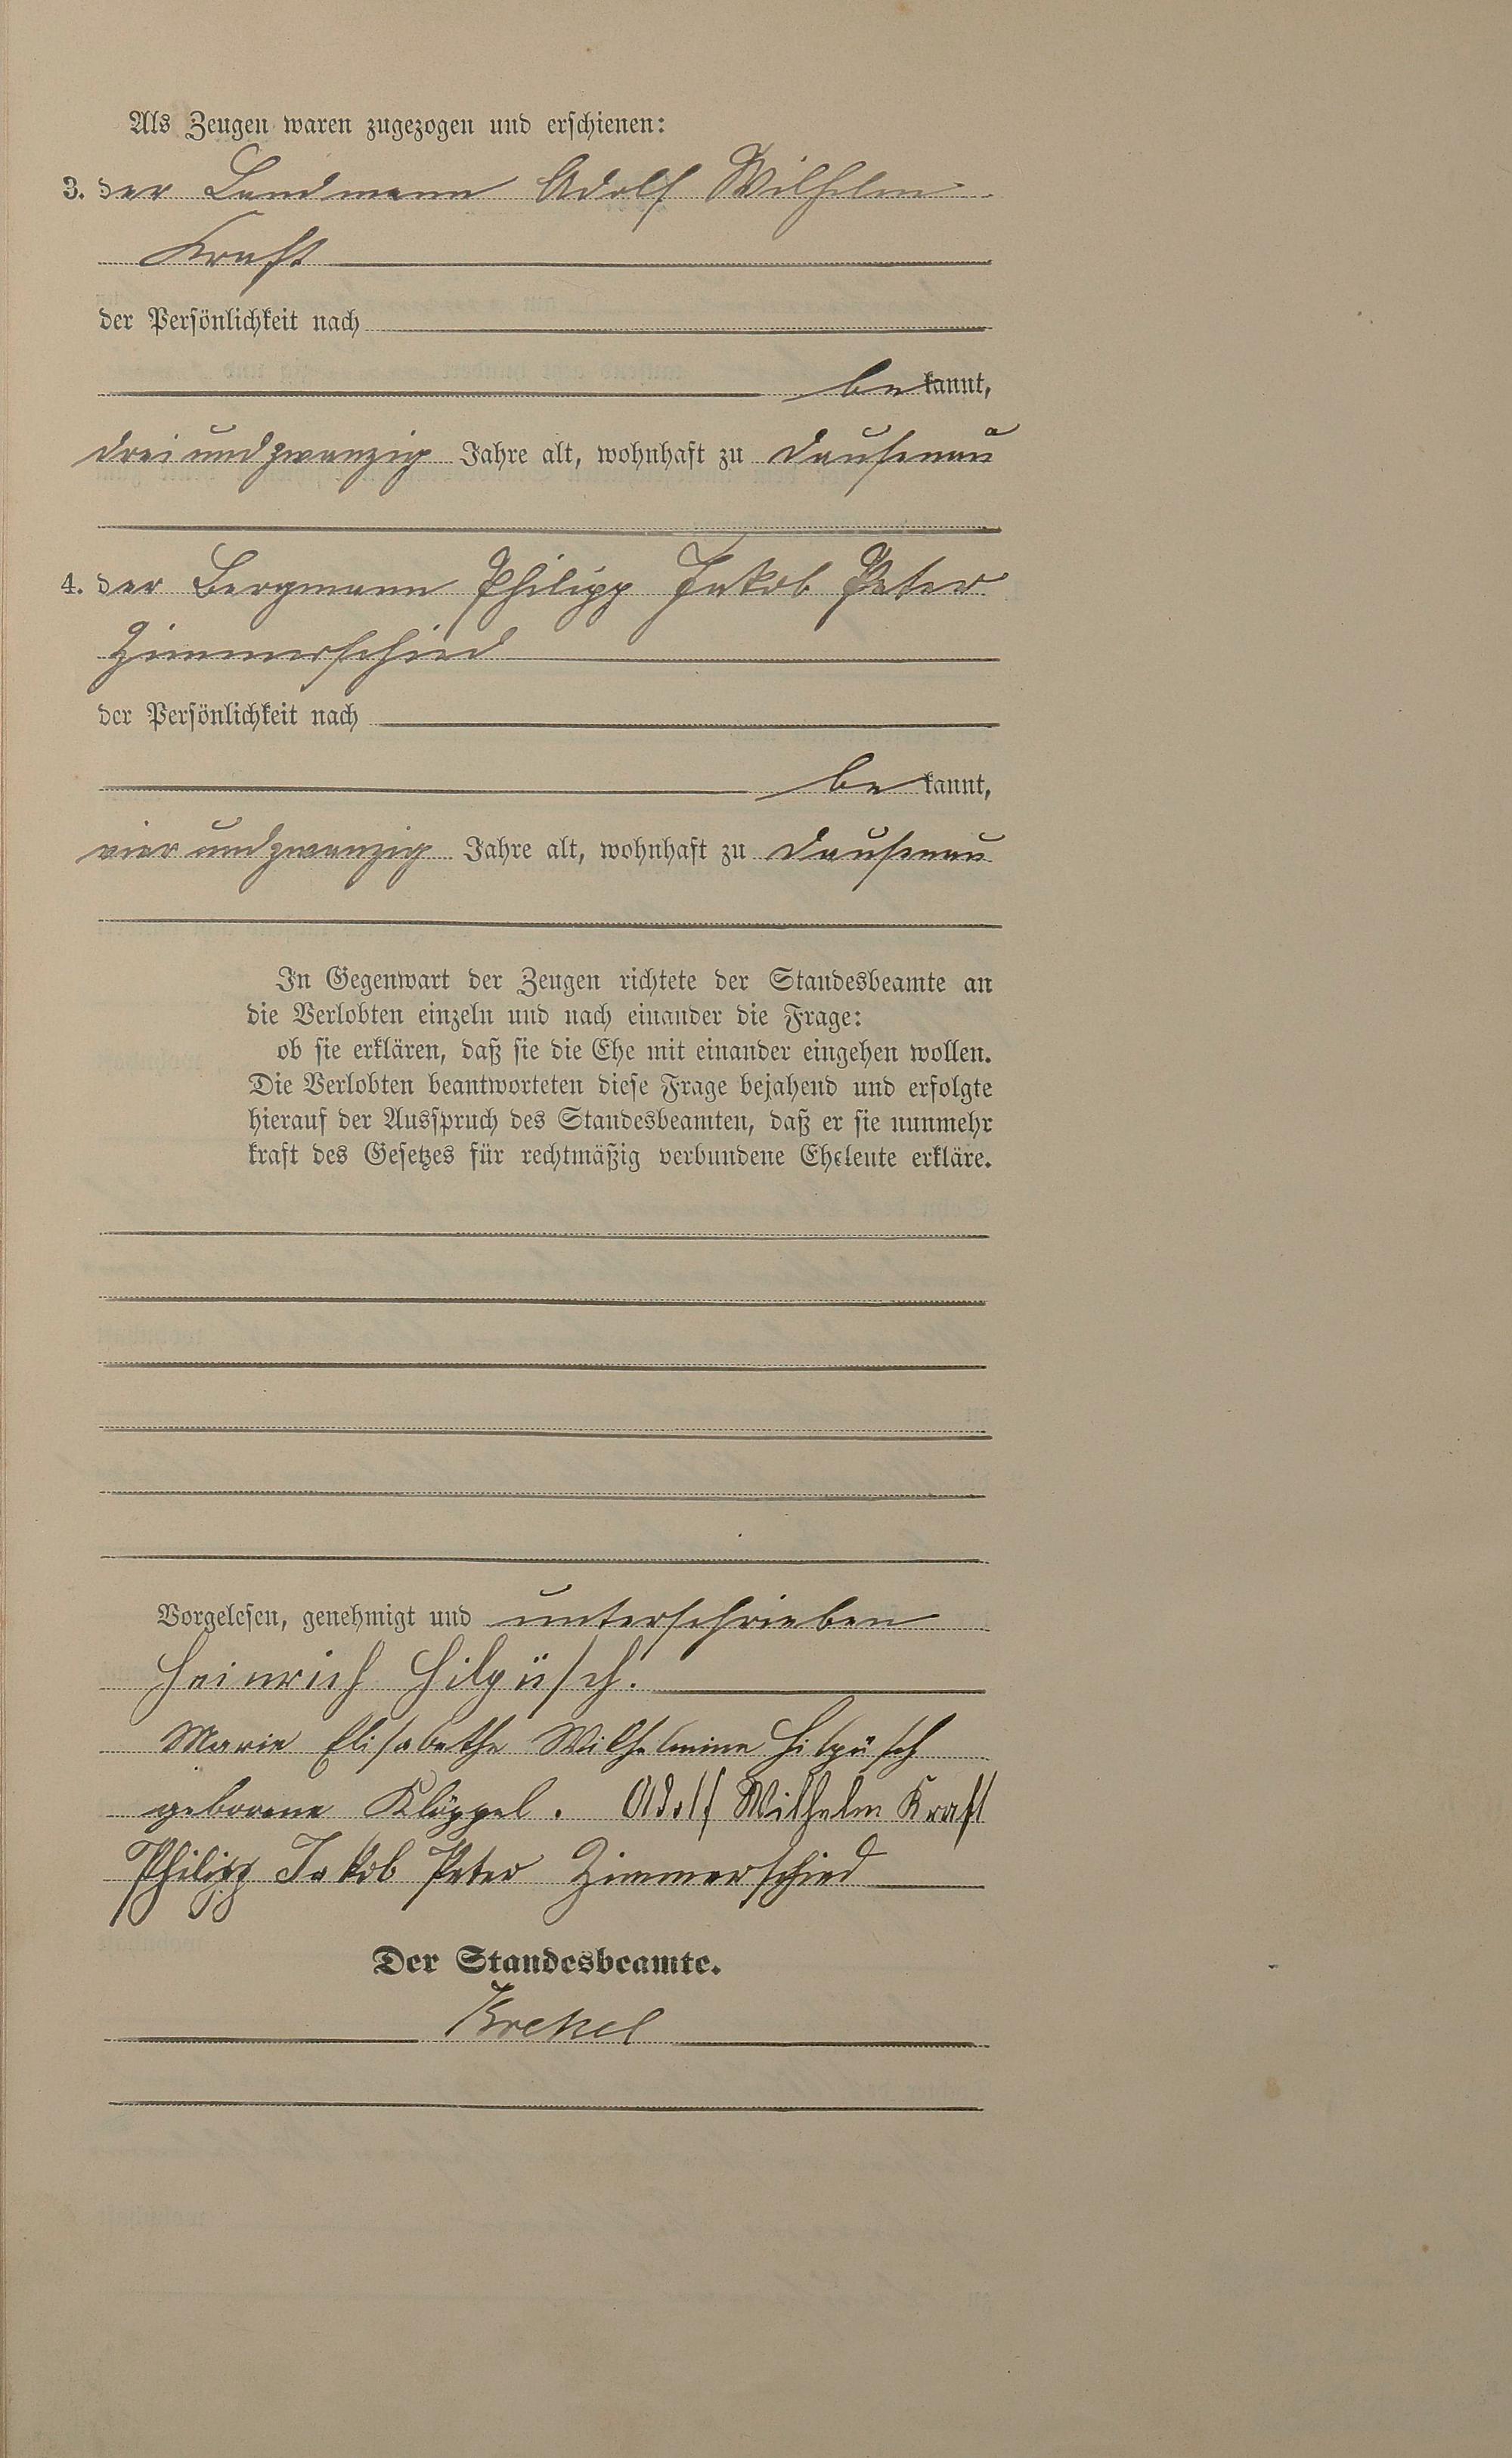 Als Zeugen waren zugezogen und erschienen:
3. der Landmann Adolf Wilhelm
Kraft
der Persönlichkeit nach
be kannt,
drei und zwanzig Jahre alt, wohnhaft zu Dausenau
4. der Bergmann Philipp Jakob Peter
Zimmerschied
der Persönlichkeit nach
be kannt,
vier und zwanzig Jahre alt, wohnhaft zu Dausenau
In Gegenwart der Zeugen richtete der Standesbeamte an
die Verlobten einzeln und nach einander die Frage:
ob sie erklären, daß sie die Ehe mit einander eingehen wollen.
Die Verlobten beantworteten diese Frage bejahend und erfolgte
hierauf der Ausspruch des Standesbeamten, daß er sie nunmehr
kraft des Gesetzes für rechtmäßig verbundene Eheleute erkläre.
Vorgelesen, genehmigt und unterschrieben
Heinrich Hilgüsch.
Marie Elisabethe Wilhelmine Hilpüsch
geborene Klöppel. Adolf Wilhelm Kraft
Philipp Jakob Peter Zimmerschied
Der Standesbeamte.
Krekel